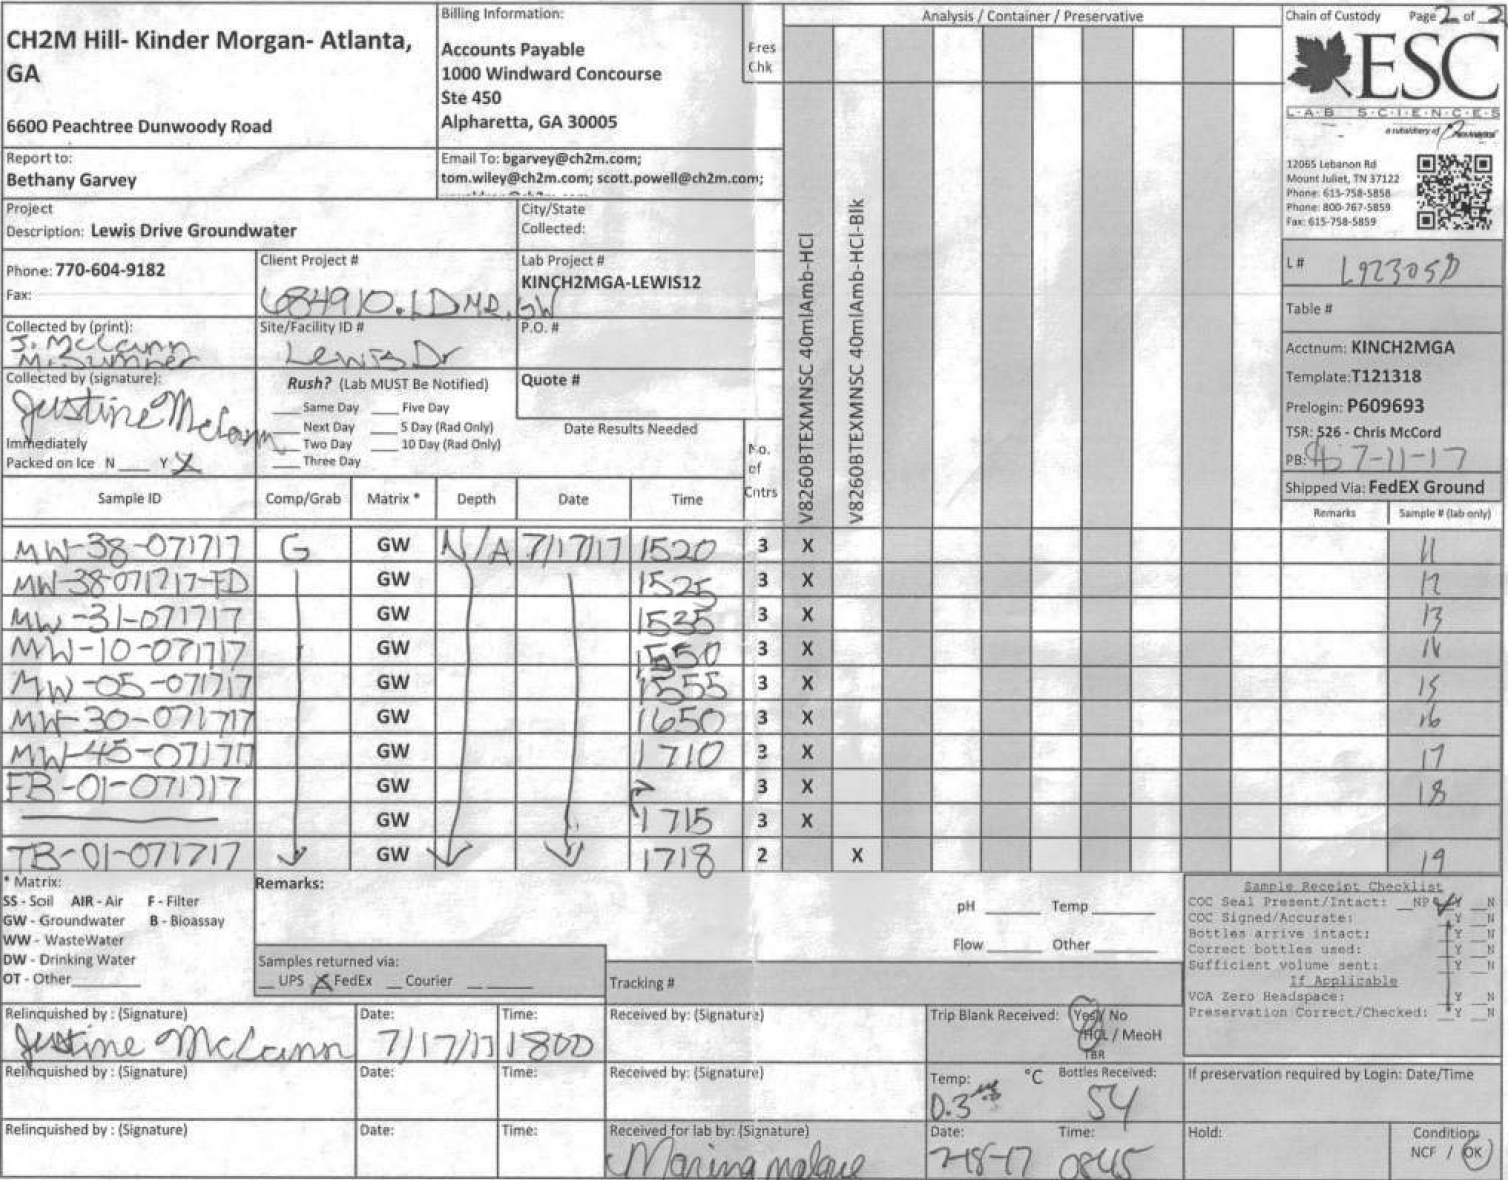 CH2M Hill- Kinder Morgan- Atlanta,
GA
6600 Peachtree Dunwoody Road
Billing Information:
Accounts Payable
1000 Windward Concourse
Ste 450
Alpharetta, GA 30005
Pres
Chk
Analysis / Container / Preservative
Chain of Custody Page 2 of 2
ESC
L·A·B S·C·I·E·N·C·E·S
a subsidiary of
12065 Lebanon Rd
Mount Juliet, TN 37122
Phone: 615-758-5858
Phone: 800-767-5859
Fax: 615-758-5859
Report to:
Bethany Garvey
Email To: bgarvey@ch2m.com;
tom.wiley@ch2m.com; scott.powell@ch2m.com;
Project
Description: Lewis Drive Groundwater
City/State
Collected:
Phone: 770-604-9182
Fax:
Client Project #
684910.LDMR.GW
Lab Project #
KINCH2MGA-LEWIS12
Collected by (print):
J. McCann
M. Sumner
Site/Facility ID #
Lewis Dr
P.O. #
Collected by (signature):
Justine McCann
Rush? (Lab MUST Be Notified)
Same Day Five Day
Next Day 5 Day (Rad Only)
Two Day 10 Day (Rad Only)
Three Day
Quote #
Date Results Needed
Immediately
Packed on Ice N Y X
No.
of
Cntrs
V8260BTEXMNSC 40mlAmb-HCl
V8260BTEXMNSC 40mlAmb-HCl-Blk
L# L923058
Table #
Acctnum: KINCH2MGA
Template: T121318
Prelogin: P609693
TSR: 526 - Chris McCord
PB: 7-11-17
Shipped Via: FedEX Ground
Sample ID Comp/Grab Matrix * Depth Date Time Remarks Sample # (lab only)
MW-38-071717 G GW N/A 7/17/17 1520 3 X 11
MW-38-071717-FD GW 1525 3 X 12
MW-31-071717 GW 1535 3 X 13
MW-10-071717 GW 1550 3 X 14
MW-05-071717 GW 1555 3 X 15
MW-30-071717 GW 1650 3 X 16
MW-45-071717 GW 1710 3 X 17
FB-01-071717 GW 3 X 18
GW 1715 3 X
TB-01-071717 GW 1718 2 X 19
* Matrix:
SS - Soil AIR - Air F - Filter
GW - Groundwater B - Bioassay
WW - WasteWater
DW - Drinking Water
OT - Other
Remarks:
pH Temp
Flow Other
Samples returned via:
UPS X FedEx Courier
Tracking #
Sample Receipt Checklist
COC Seal Present/Intact: NP Y N
COC Signed/Accurate: Y N
Bottles arrive intact: Y N
Correct bottles used: Y N
Sufficient volume sent: Y N
If Applicable
VOA Zero Headspace: Y N
Preservation Correct/Checked: Y N
Relinquished by : (Signature)
Justine McCann
Date:
7/17/17
Time:
1800
Received by: (Signature)
Trip Blank Received: Yes / No
HCL / MeoH
TBR
Relinquished by : (Signature)
Date:
Time:
Received by: (Signature)
Temp: °C
0.3
Bottles Received:
54
If preservation required by Login: Date/Time
Relinquished by : (Signature)
Date:
Time:
Received for lab by: (Signature)
Date:
7-18-17
Time:
0845
Hold:
Condition:
NCF / OK